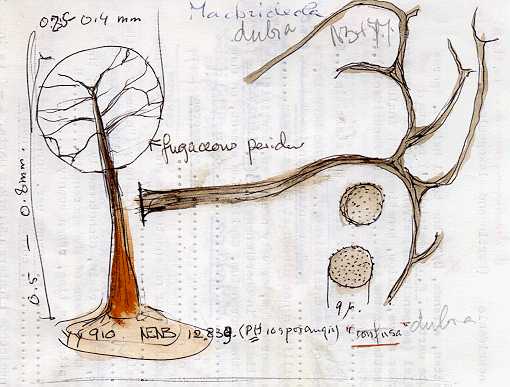 0.4 mm
Macbrideola
dubia
fugaceous peridium
0.5 — 0.8 mm.
9 µ.
910 NENB 12.839. (PH 10 sporangia) "confusa"
dubia